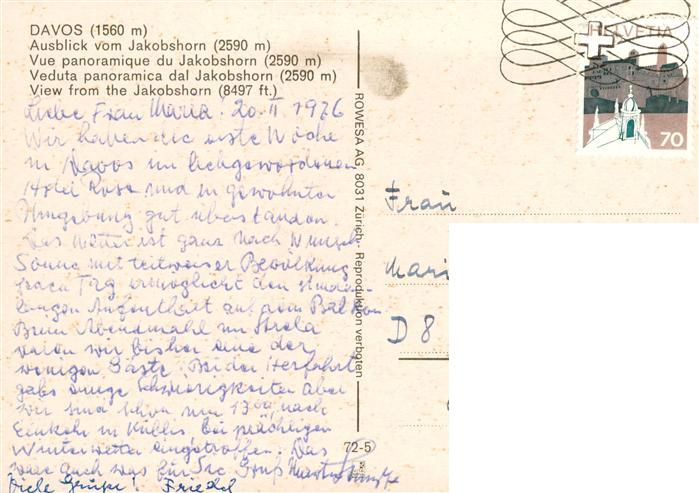 DAVOS (1560 m)
Ausblick vom Jakobshorn (2590 m)
Vue panoramique du Jakobshorn (2590 m)
Veduta panoramica dal Jakobshorn (2590 m)
View from the Jakobshorn (8497 ft.)
Liebe Frau Maria! 20.II 1976
Wir haben die erste Woche
in Davos im liebgewordenen
Hotel Rose und in gewohnter
Umgebung gut überstanden.
Das Wetter ist ganz nach Wunsch
Sonne mit teilweiser Bewölkung
jeden Tag ermöglicht den stunden-
langen Aufenthalt auf dem Balkon
Beim Abendmahl im Strela
waren wir bisher eine der
wenigen Gäste. Bei der Herfahrt
gabs einige Schwierigkeiten Aber
wir sind schon um 13 nach
Einkehr in Küblis bei prächtigen
Winterwetter eingetroffen. Das
wäre auch was für Sie Gruß
Viele Grüße! Friedel
ROWESA AG, 8031 Zürich - Reproduktion verboten
72-5
HELVETIA
70
Frau
Mari
D 8